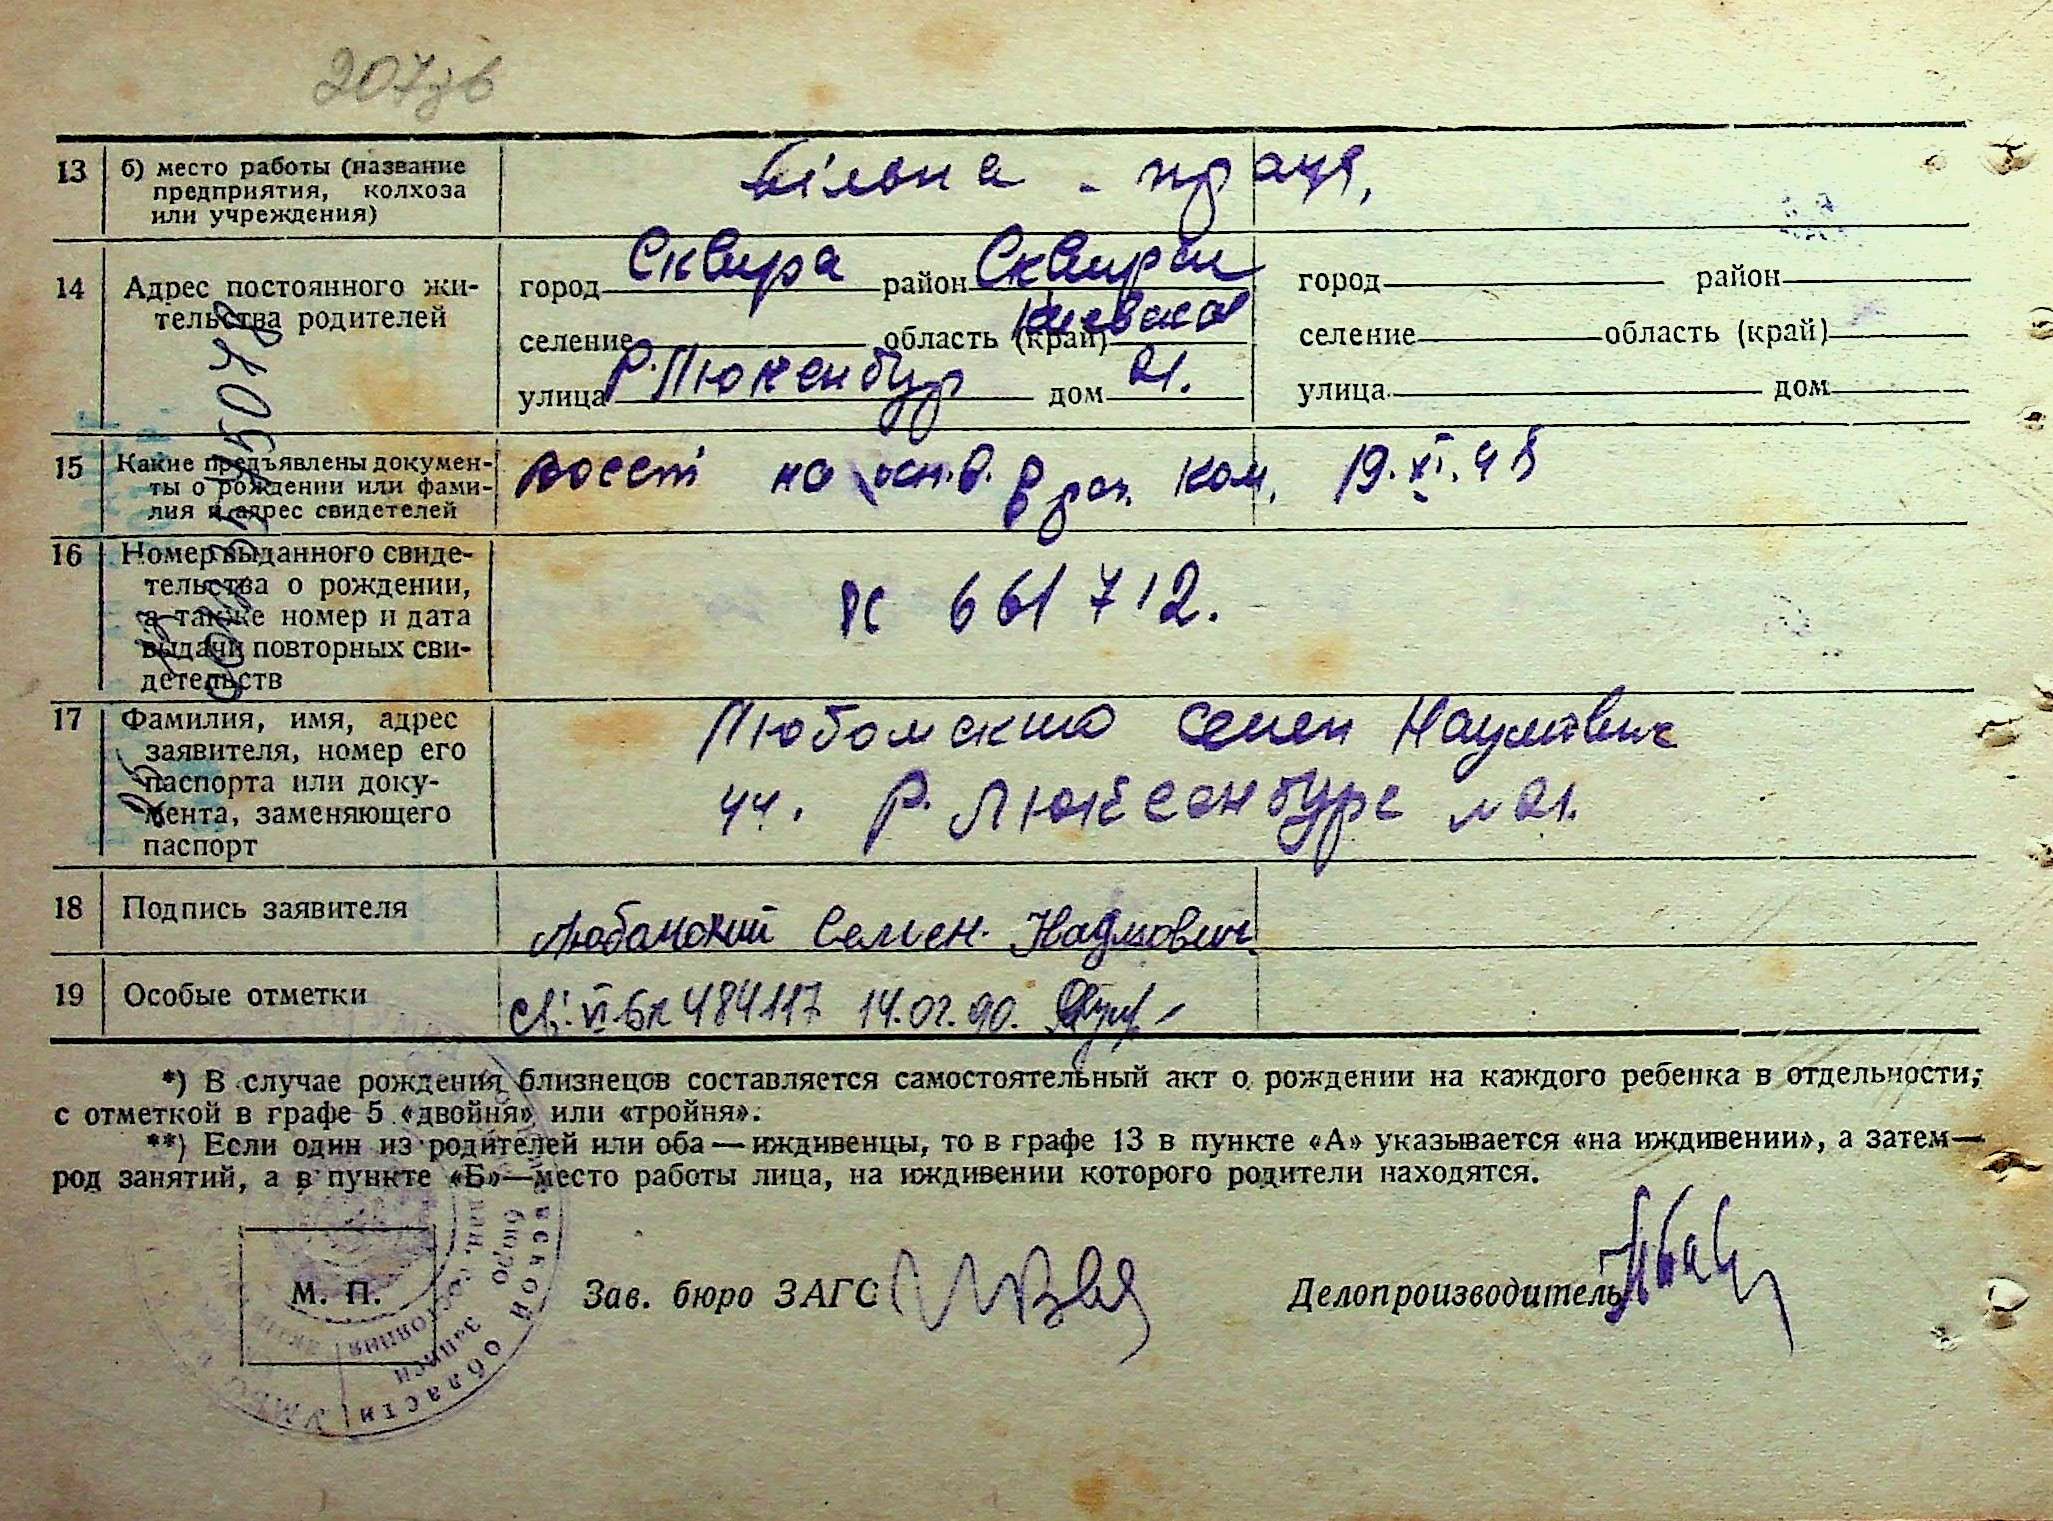 207зв
13 б) место работы (название
предприятия, колхоза
или учреждения)
Вільна - праця,
14 Адрес постоянного жи-
тельства родителей
город Сквира район Сквирск
селение область (край) Киевская
улица Р. Люксенбург дом 21.
город район
селение область (край)
улица дом
15 Какие предъявлены докумен-
ты о рождении или фами-
лия и адрес свидетелей
восст на осн. В раз. ком. 19.XI.48
16 Номер выданного свиде-
тельства о рождении,
а также номер и дата
выдачи повторных сви-
детельств
661712.
17 Фамилия, имя, адрес
заявителя, номер его
паспорта или доку-
мента, заменяющего
паспорт
Любомский Семен Наумович
Р. Люксенбург № 21.
18 Подпись заявителя
Любомский Семен. Наумович
19 Особые отметки
св. VI БК 484117 14.02.90.
*) В случае рождения близнецов составляется самостоятельный акт о рождении на каждого ребенка в отдельности,
с отметкой в графе 5 «двойня» или «тройня».
**) Если один из родителей или оба — иждивенцы, то в графе 13 в пункте «А» указывается «на иждивении», а затем —
род занятий, а в пункте «Б» — место работы лица, на иждивении которого родители находятся.
М. П.
Зав. бюро ЗАГС
Делопроизводитель
области УМВС
бюро записи
состояния